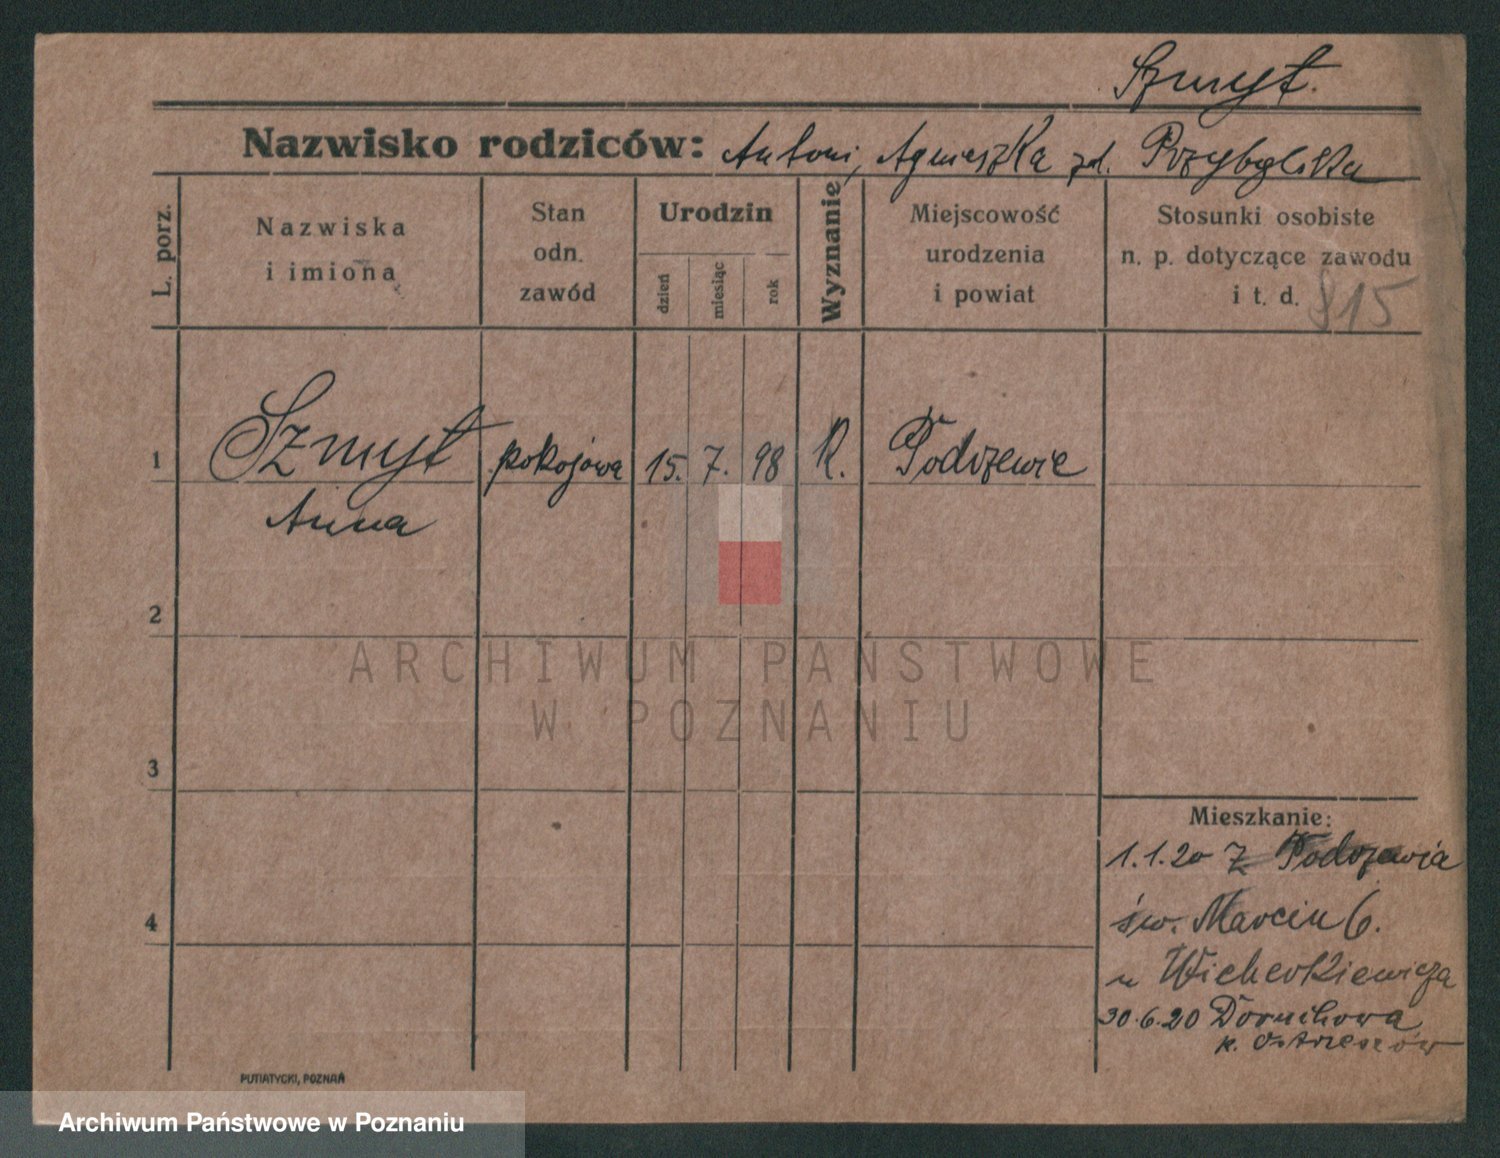 Szmyt.
Nazwisko rodziców: Antoni, Agnieszka zd. Przybylska
L. porz.
Nazwiska
i imiona
Stan
odn.
zawód
Urodzin
dzień
miesiąc
rok
Wyznanie
Miejscowość
urodzenia
i powiat
Stosunki osobiste
n. p. dotyczące zawodu
i t. d.
815
1 Szmyt pokojowa 15. 7. 98 R. Podrzewie
Anna
2
ARCHIWUM PAŃSTWOWE
W POZNANIU
3
4
Mieszkanie:
1.1.20 z Podrzewia
św. Marcin 6.
u Wicherkiewicza
30.6.20 Doruchowa
k. Ostrzeszów
PUTIATYCKI, POZNAŃ
Archiwum Państwowe w Poznaniu